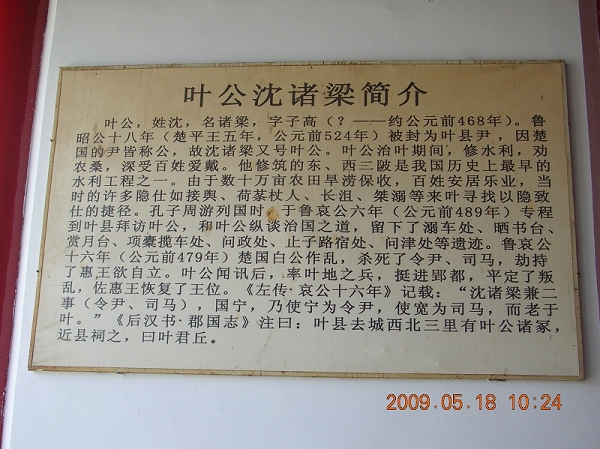 叶公沈诸梁简介
叶公，姓沈，名诸梁，字子高（？——约公元前468年）。鲁
昭公十八年（楚平王五年，公元前524年）被封为叶县尹，因楚
国的尹皆称公，故沈诸梁又号叶公。叶公治叶期间，修水利，劝
农桑，深受百姓爱戴。他修筑的东、西三陂是我国历史上最早的
水利工程之一。由于数十万亩农田旱涝保收，百姓安居乐业，当
时的许多隐仕如接舆、荷蓧杖人、长沮、桀溺等来叶寻找以隐致
仕的捷径。孔子周游列国时，于鲁哀公六年（公元前489年）专程
到叶县拜访叶公，和叶公纵谈治国之道，留下了溺车处、晒书台、
赏月台、项橐揽车处、问政处、止子路宿处、问津处等遗迹。鲁哀公
十六年（公元前479年）楚国白公作乱，杀死了令尹、司马，劫持
了惠王欲自立。叶公闻讯后，率叶地之兵，挺进郢都，平定了叛
乱，佐惠王恢复了王位。《左传·哀公十六年》记载：“沈诸梁兼二
事（令尹、司马），国宁，乃使宁为令尹，使宽为司马，而老于
叶。”《后汉书·郡国志》注曰：叶县去城西北三里有叶公诸冢，
近县祠之，曰叶君丘。
2009.05.18 10:24